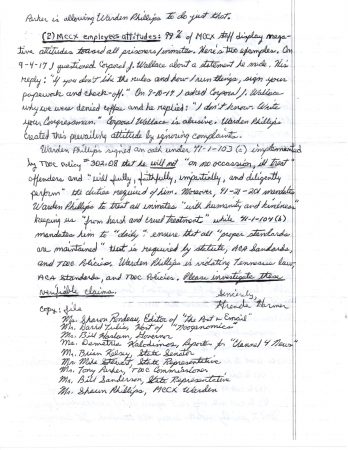 Parker is allowing Warden Phillips to do just that.
(2) MCCX employees attitudes: 99% of MCCX staff display nega-
tive attitudes toward all prisoners/inmates. Here's two examples. On
9-4-17 I questioned Corporal J. Wallace about a statement he made. His
reply: "If you don't like the rules and how I run things, sign your
paperwork and check-off." On 9-10-17 I asked Corporal J. Wallace
why we were denied coffee and he replied: "I don't know. Write
your Congressmen." Corporal Wallace is abusive. Warden Phillips
created this prevailing attitude by ignoring complaints.
Warden Phillips signed an oath under 41-1-103 (c) implemented
by TDOC policy #302.08 that he will not "on no occasion, ill treat
offenders and "will fully, faithfully, impartially, and diligently
perform" the duties required of him. Moreover, 41-21-201 mandates
Warden Phillips to treat all inmates "with humanity and kindness"
keeping us "from harsh and cruel treatment" while 41-1-104(b)
mandates him to "daily" ensure that all "proper standards
are maintained" that is required by statute, ACA Standards,
and TDOC Policies. Warden Phillips is violating Tennessee law,
ACA Standards, and TDOC Policies. Please investigate these
verifiable claims.
Sincerely,
Harmer
Copy: file
Ms. Sharon Rondeau, Editor of "The Post & Email"
Mr. David Tulis, Host of "Nooganomics"
Mr. Bill Haslam, Governor
Ms. Demetria Kalodimos, Reporter for "Channel 4 News"
Mr. Brian Kelsey, State Senator
Mr. Mike Stewart, State Representative
Mr. Tony Parker, TDOC Commissioner
Mr. Bill Sanderson, State Representative
Mr. Shawn Phillips, MCCX Warden